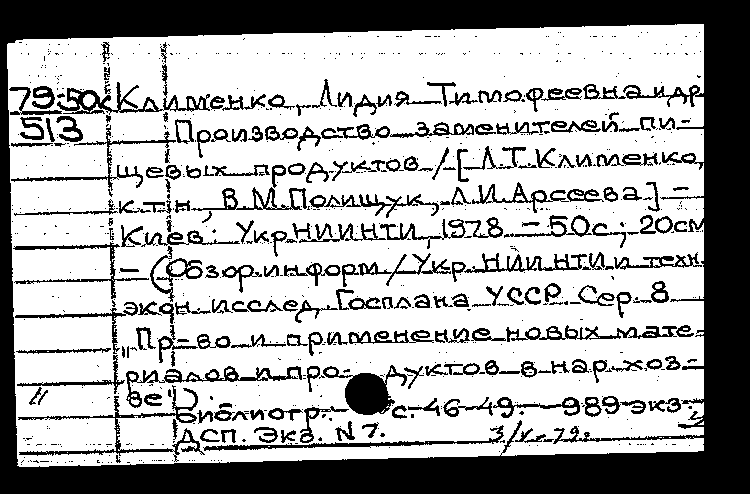 79:50с Клименко, Лидия Тимофеевна и др
513 Производство заменителей пи-
щевых продуктов /[Л.Т.Клименко,
к.т.н, В.М.Полищук, Л.И.Арсеева] -
Киев: УкрНИИНТИ, 1978. - 50с; 20см
- (Обзор.информ/Укр.НИИНТИ и техн.
экон. исслед. Госплана УССР. Сер. 8
„Пр-во и применение новых мате-
риалов и про- дуктов в нар. хоз-
ве").
" Библиогр.: с.46-49. - 989 экз.
ДСП. Экз. N 7. 3/V-79.